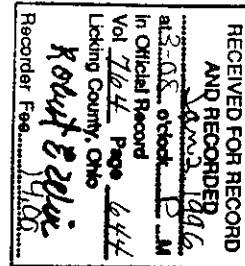 RECEIVED FOR RECORD
AND RECORDED
Jan 2 1996
at 3:08 o'clock P M
In Official Record
Vol 764 Page 644
Licking County, Ohio
Robert E
Recorder Fee 14.00